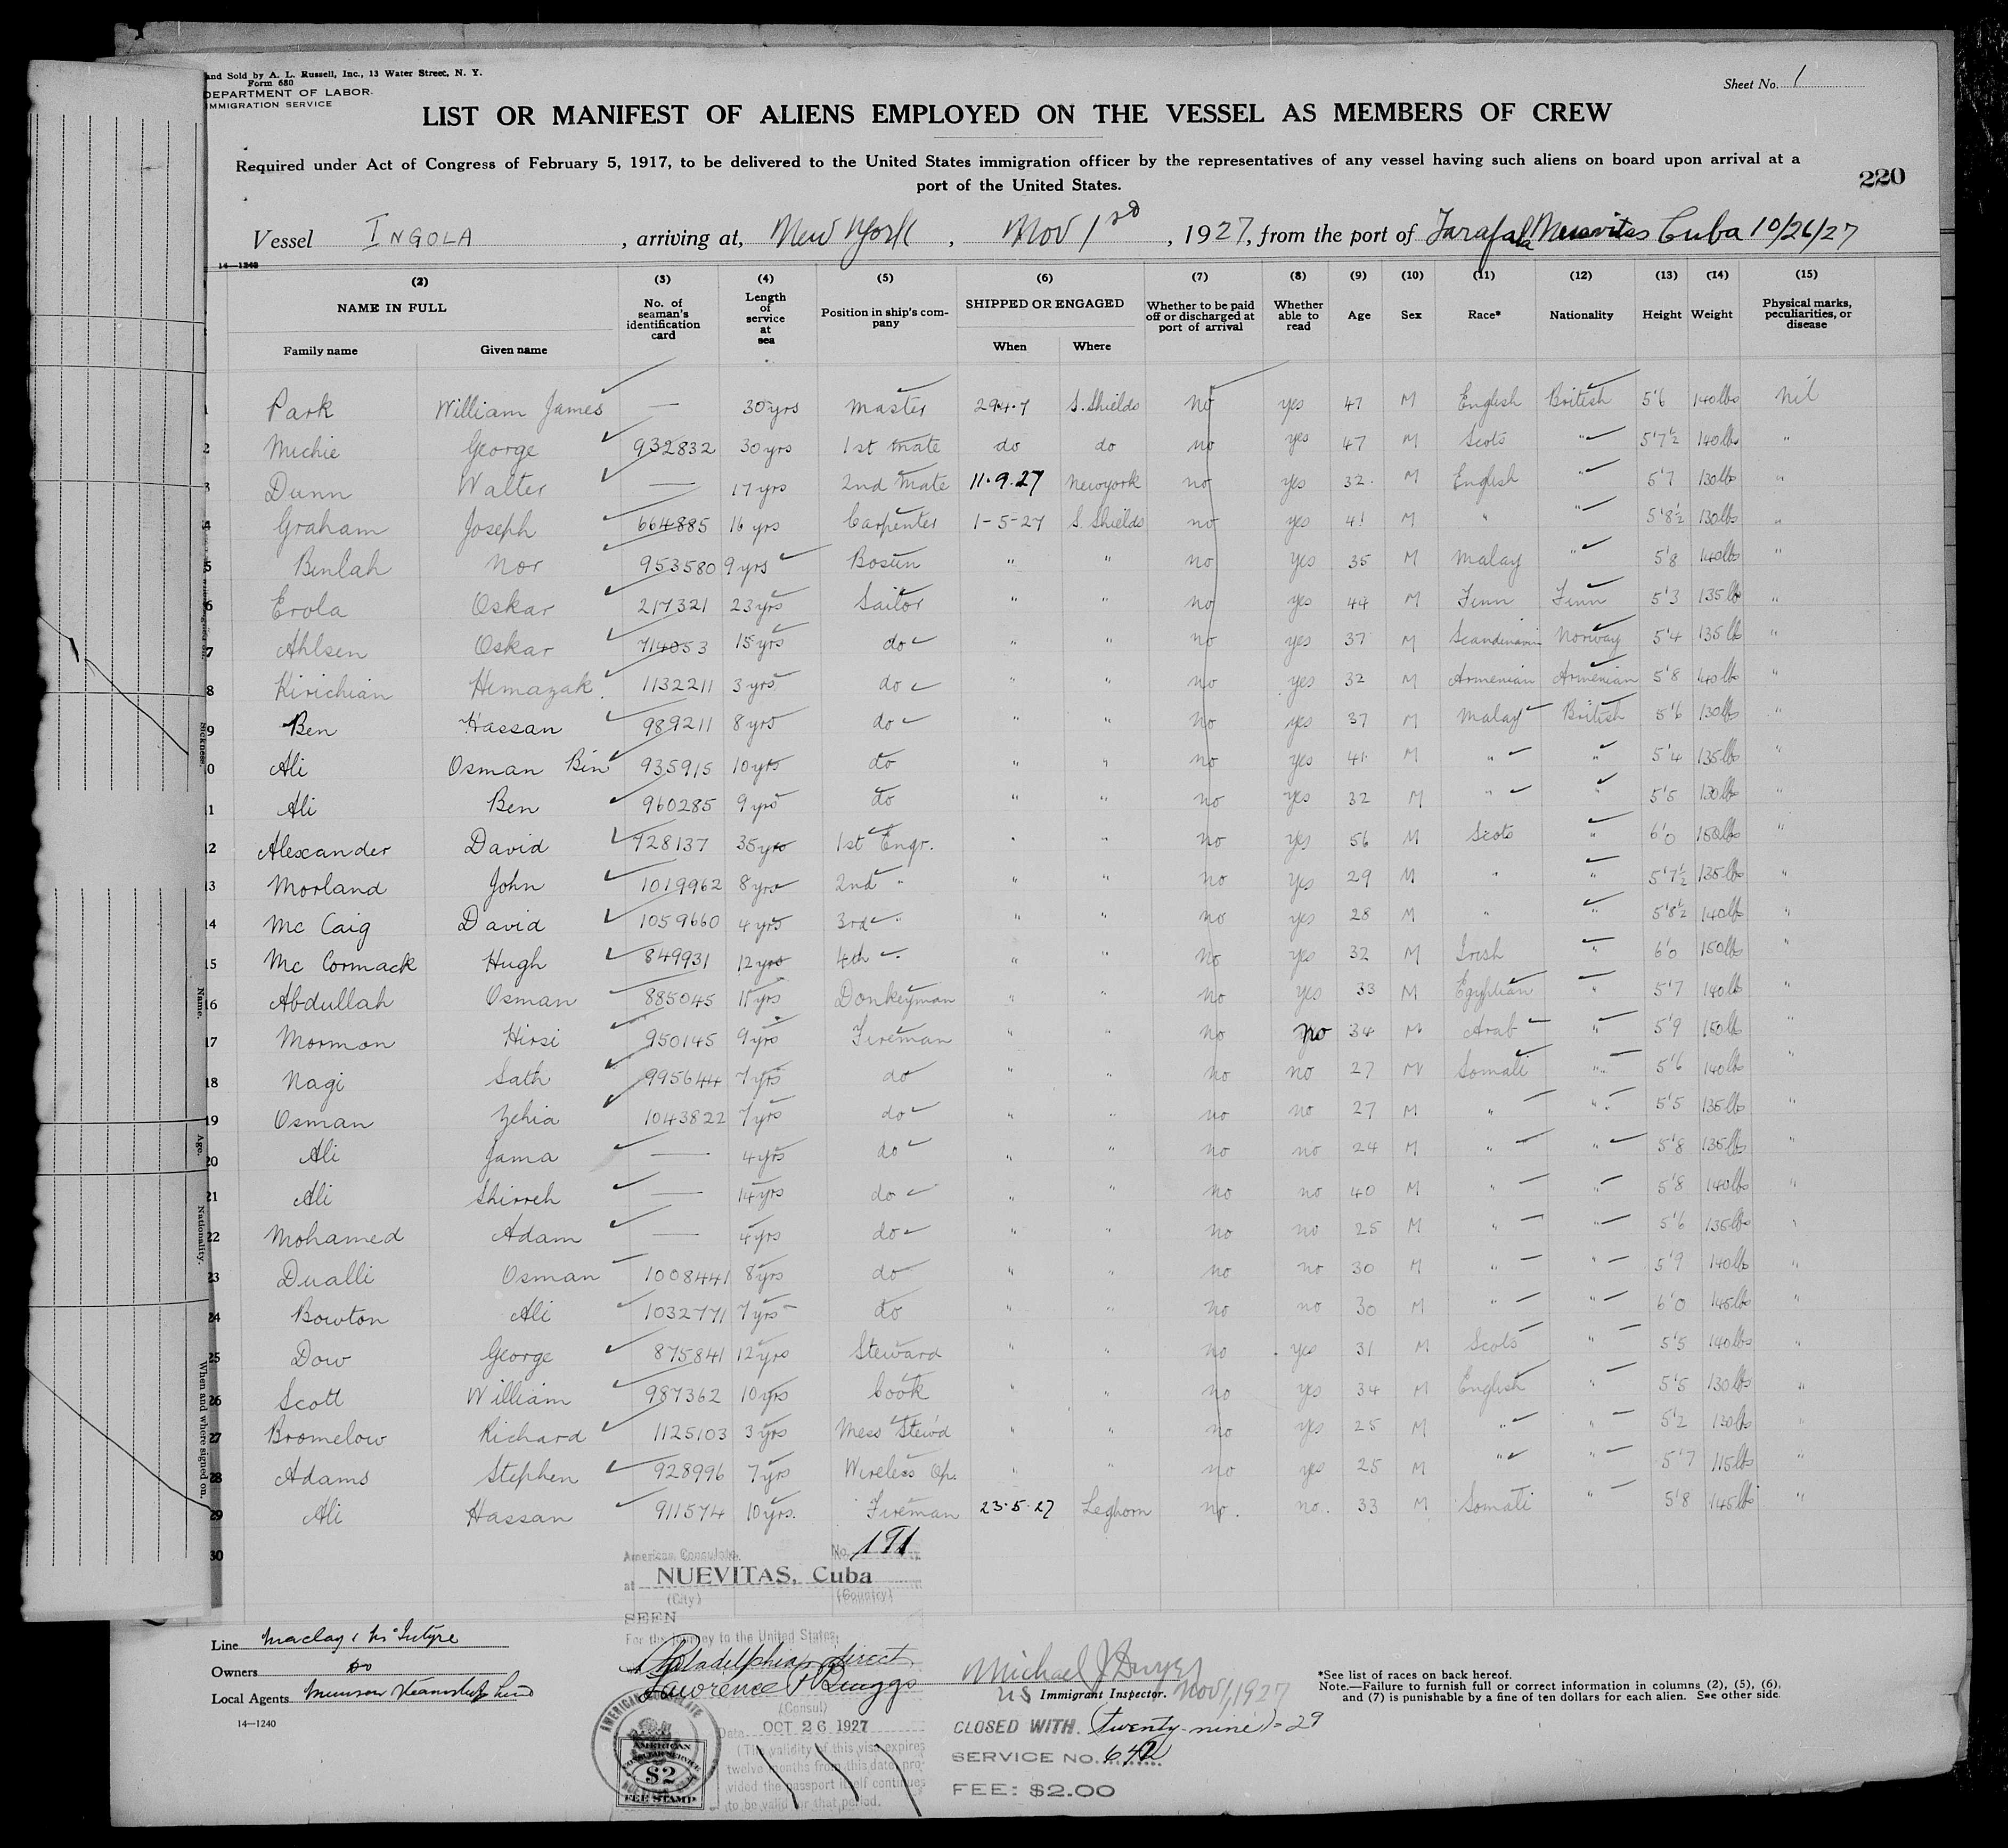 and Sold by A. L. Russell, Inc., 13 Water Street, N. Y.
Form 680
DEPARTMENT OF LABOR
IMMIGRATION SERVICE
Sheet No. 1
LIST OR MANIFEST OF ALIENS EMPLOYED ON THE VESSEL AS MEMBERS OF CREW
Required under Act of Congress of February 5, 1917, to be delivered to the United States immigration officer by the representatives of any vessel having such aliens on board upon arrival at a
port of the United States.
220
Vessel INGOLA, arriving at, New York, Nov 1st, 1927, from the port of Tarafa Nuevitas Cuba 10/26/27
14—1240
(2) (3) (4) (5) (6) (7) (8) (9) (10) (11) (12) (13) (14) (15)
NAME IN FULL No. of seaman's identification card Length of service at sea Position in ship's company SHIPPED OR ENGAGED Whether to be paid off or discharged at port of arrival Whether able to read Age Sex Race* Nationality Height Weight Physical marks, peculiarities, or disease
Family name Given name When Where
1 Park William James — 30 yrs Master 29.4.7 S. Shields no yes 47 M English British 5'6 140lbs nil
2 Michie George 932832 30 yrs 1st Mate do do no yes 47 M Scots " 5'7½ 140lbs "
3 Dunn Walter — 17 yrs 2nd Mate 11.9.27 Newyork no yes 32 M English " 5'7 130lbs "
4 Graham Joseph 664885 16 yrs Carpenter 1-5-27 S. Shields no yes 41 M " " 5'8½ 130lbs "
5 Binlah Nor 953580 9 yrs Bosun " " no yes 35 M Malay " 5'8 140lbs "
6 Erola Oskar 217321 23 yrs Sailor " " no yes 44 M Finn Finn 5'3 135lb "
7 Ahlsen Oskar 714053 15 yrs do " " no yes 37 M Scandinavin Norway 5'4 135lb "
8 Kirichian Hemazak 1132211 3 yrs do " " no yes 32 M Armenian Armenian 5'8 140lbs "
9 Ben Hassan 989211 8 yrs do " " no yes 37 M Malay British 5'6 130lbs "
0 Ali Osman Bin 935915 10 yrs do " " no yes 41 M " " 5'4 135lbs "
1 Ali Ben 960285 9 yrs do " " no yes 32 M " " 5'5 130lbs "
12 Alexander David 928137 35 yrs 1st Engr. " " no yes 56 M Scots " 6'0 150lbs "
13 Morland John 1019962 8 yrs 2nd " " " no yes 29 M " " 5'7½ 135lbs "
14 Mc Caig David 1059660 4 yrs 3rd " " " no yes 28 M " " 5'8½ 140lbs "
15 Mc Cormack Hugh 849931 12 yrs 4th " " " no yes 32 M Irish " 6'0 150lbs "
16 Abdullah Osman 885045 11 yrs Donkeyman " " no yes 33 M Egyptian " 5'7 140lb "
17 Mormon Hirsi 950145 9 yrs Fireman " " no no 34 M Arab " 5'9 150lb "
18 Nagi Sath 995644 7 yrs do " " no no 27 M Somali " 5'6 140lbs "
19 Osman Zehia 1043822 7 yrs do " " no no 27 M " " 5'5 135lbs "
20 Ali Jama — 4 yrs do " " no no 24 M " " 5'8 135lbs "
21 Ali Shirreh — 14 yrs do " " no no 40 M " " 5'8 140lbs "
22 Mohamed Adam — 4 yrs do " " no no 25 M " " 5'6 135lbs "
23 Dualli Osman 1008441 8 yrs do " " no no 30 M " " 5'9 140lbs "
24 Bowton Ali 1032771 7 yrs do " " no no 30 M " " 6'0 145lbs "
25 Dow George 875841 12 yrs Steward " " no yes 31 M Scots " 5'5 140lbs "
26 Scott William 987362 10 yrs Cook " " no yes 34 M English " 5'5 130lbs "
27 Bromelow Richard 1125103 3 yrs Mess Stewd " " no yes 25 M " " 5'2 130lbs "
28 Adams Stephen 928996 7 yrs Wireless Op. " " no yes 25 M " " 5'7 115lbs "
29 Ali Hassan 911574 10 yrs. Fireman 23.5.27 Leghorn no. no. 33 M Somali " 5'8 145lbs "
30
Sickness.
Name.
Age.
Nationality.
When and where signed on.
American Consulate No. 191
at NUEVITAS, Cuba
(City) (Country)
SEEN
For the journey to the United States,
Philadelphia, direct
Lawrence P Briggs
(Consul)
Date OCT 26 1927
(The validity of this visa expires
twelve months from this date, pro-
vided the passport itself continues
to be valid for that period.
AMERICAN CONSULATE
AMERICAN
$2
FEE STAMP
Line Maclay & McIntyre
Owners do
Local Agents Munson Steamship Line
14—1240
Michael J Dwyer
US Immigrant Inspector. Nov 1, 1927
CLOSED WITH (twenty-nine) = 29
SERVICE NO. 642
FEE: $2.00
*See list of races on back hereof.
Note.—Failure to furnish full or correct information in columns (2), (5), (6),
and (7) is punishable by a fine of ten dollars for each alien. See other side.